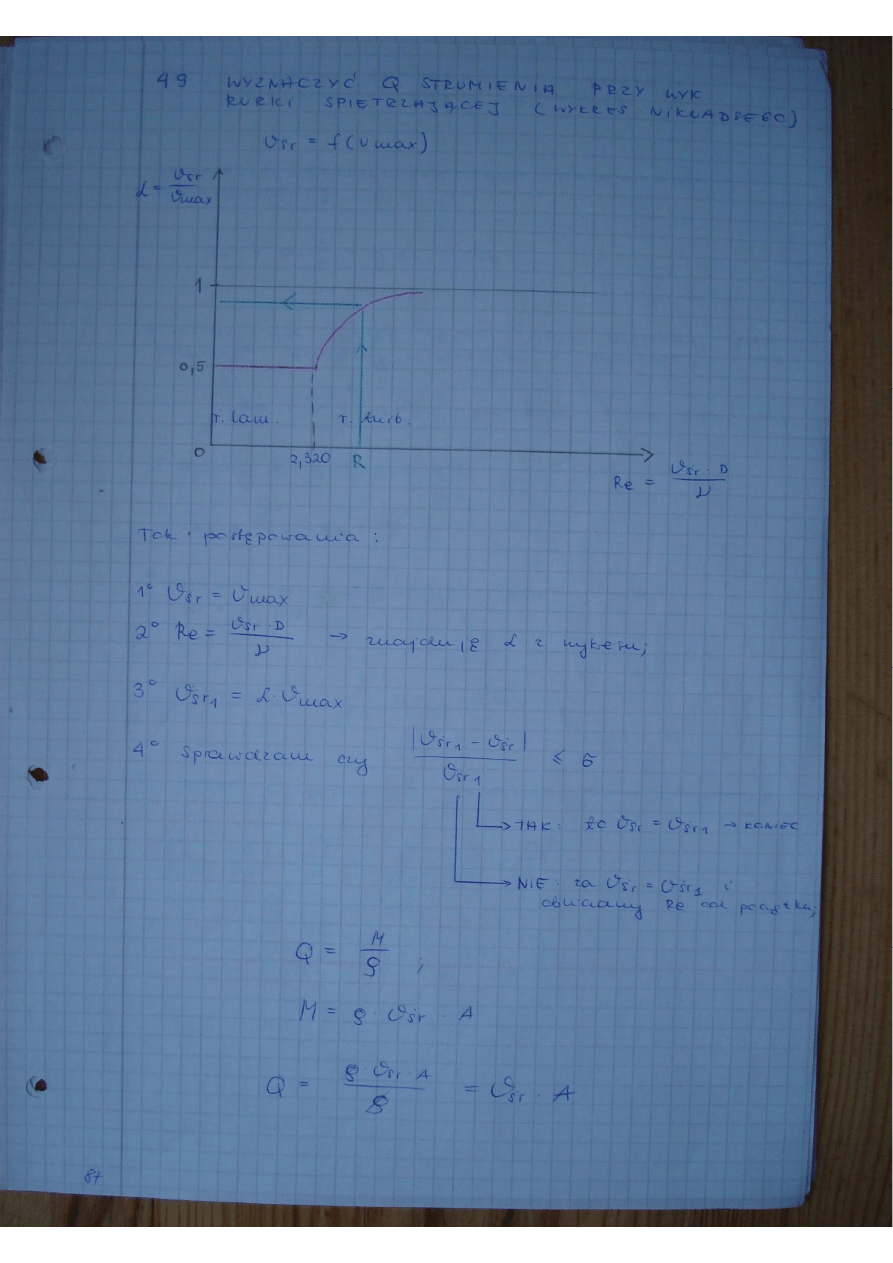 49 WYZNACZYĆ Q STRUMIENIA PRZY WYK
RURKI SPIĘTRZAJĄCEJ (WYKRES NIKUADSEGO)
vśr = f(vmax)
α = vśr / vmax
1
0,5
r. lam. r. turb.
0 2,320 R
Re = vśr · D / ν
Tok postępowania :
1° vśr = vmax
2° Re = vśr · D / ν → znajduję α z wykresu;
3° vśr1 = α · vmax
4° Sprawdzam czy |vśr1 - vśr| / vśr1 ≤ δ
→ TAK: to vśr = vśr1 → KONIEC
→ NIE: za vśr = vśr1 i
obliczamy Re od początku;
Q = M / ρ ;
M = ρ · vśr · A
Q = ρ · vśr · A / ρ = vśr · A
87